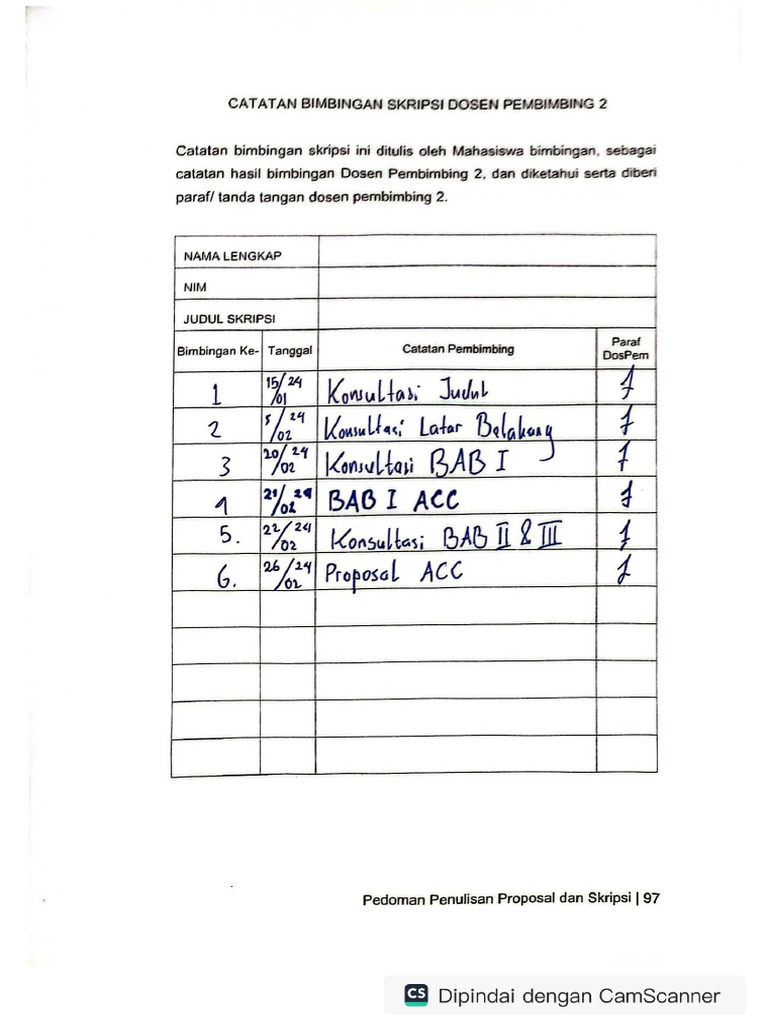 CATATAN BIMBINGAN SKRIPSI DOSEN PEMBIMBING 2
Catatan bimbingan skripsi ini ditulis oleh Mahasiswa bimbingan, sebagai
catatan hasil bimbingan Dosen Pembimbing 2, dan diketahui serta diberi
paraf/ tanda tangan dosen pembimbing 2.
NAMA LENGKAP
NIM
JUDUL SKRIPSI
Bimbingan Ke- Tanggal Catatan Pembimbing Paraf DosPem
1 15/24 /01 Konsultasi Judul
2 5/24 /02 Konsultasi Latar Belakang
3 20/24 /02 Konsultasi BAB I
4 21/24 /02 BAB I ACC
5. 22/24 /02 Konsultasi BAB II & III
6. 26/24 /02 Proposal ACC
Pedoman Penulisan Proposal dan Skripsi | 97
CS Dipindai dengan CamScanner